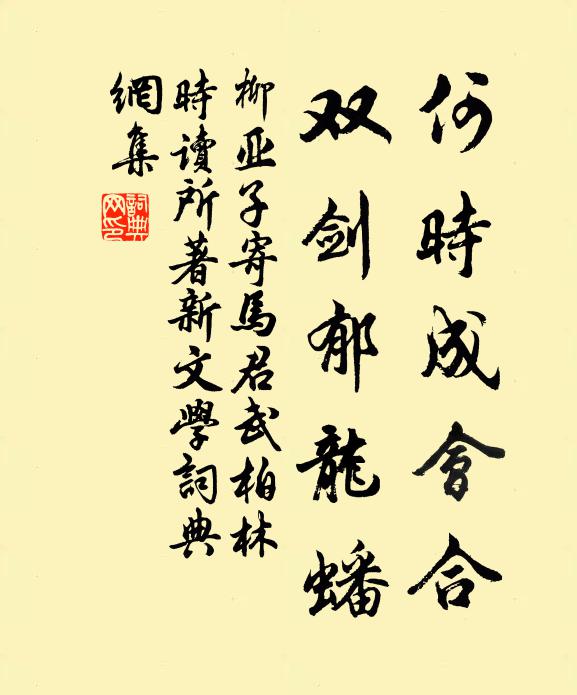 何時成會合
双剑郁龍蟠
柳亚子寄馬君武柏林
時讀所著新文學詞典
網集
詞典网印